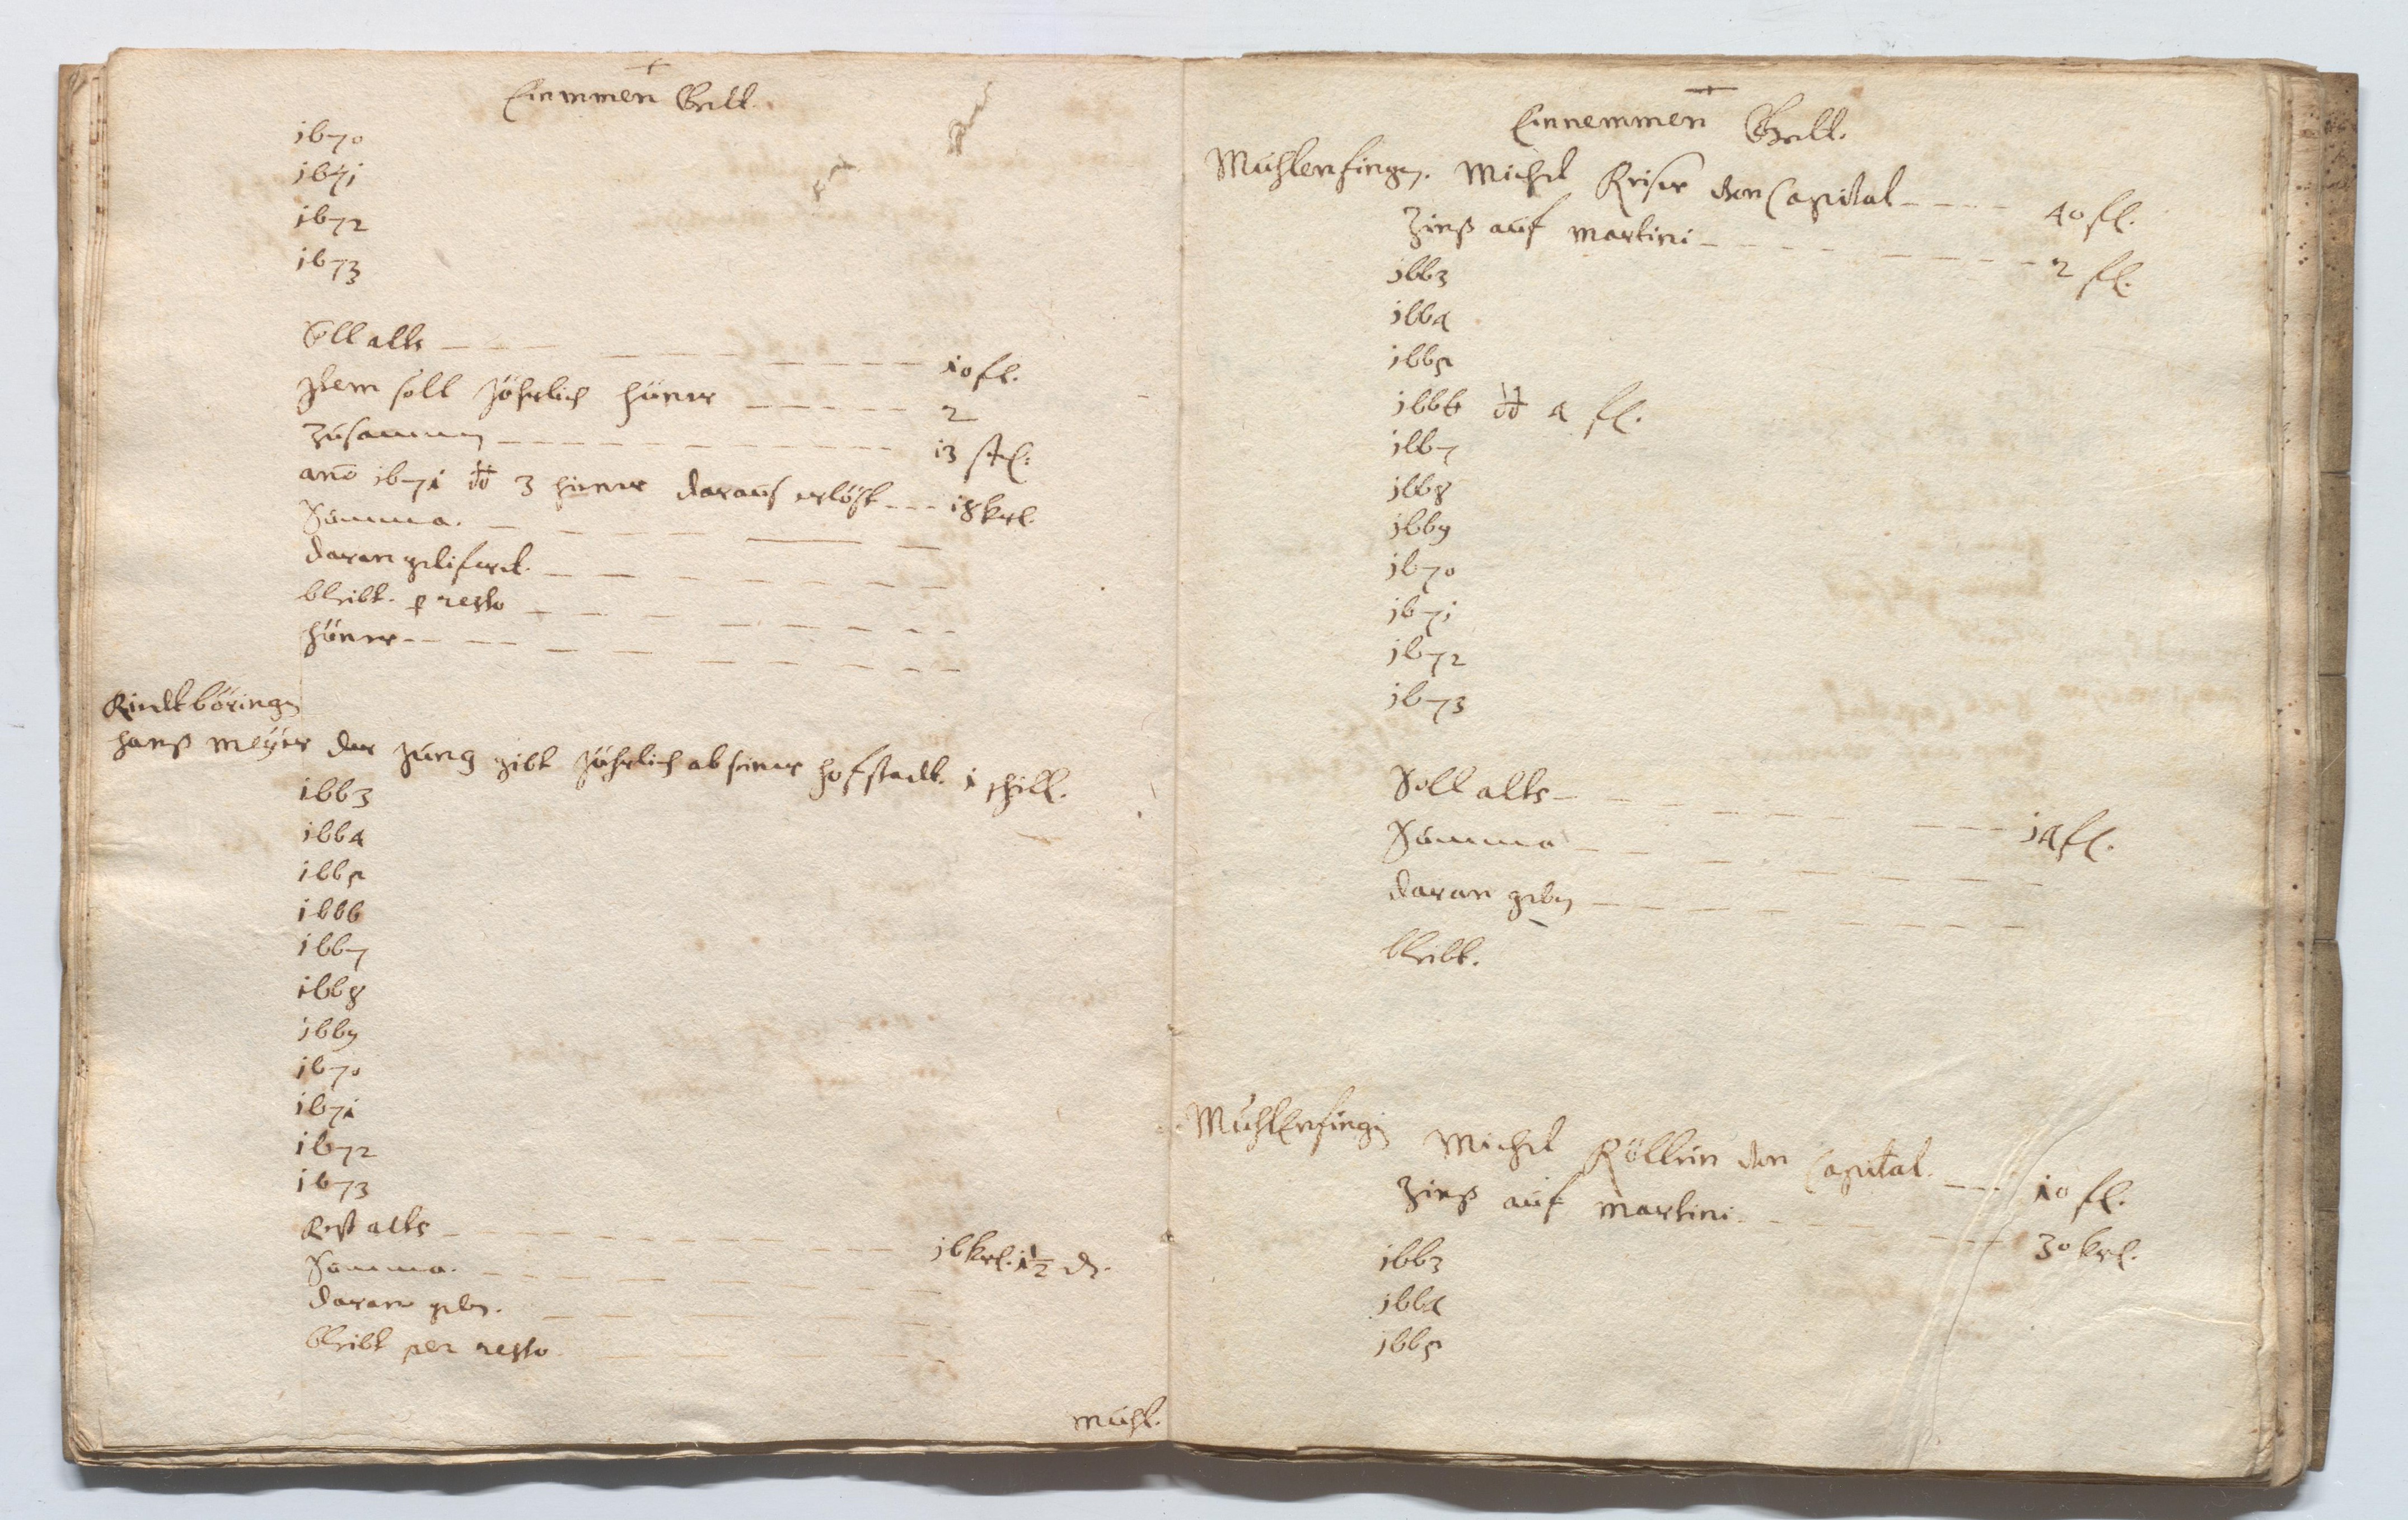 Einnemmen Gellt.
1670
1671
1672
1673
Soll allts 10 fl.
Item soll Jöhrlich hüener 2
Zusammen 13 stl:
anō 1671 dd 3 hiener daraus erlöst 18 krl.
Summa.
daran gelifert.
bleibt. p resto
hüener
Rindtböringen
hanß Meÿer der Jung gibt Jährlich ab seiner hofstadt. 1 schill.
1663
1664
1665
1666
1667
1668
1669
1670
1671
1672
1673
Rest allts 16 krl. 1 1/2 d.
Summa.
daran geben.
bleibt per resto
Mühl.
Einnemmen Gellt.
Mühlenfingen. Michel Reiser von Capital 40 fl.
Zinß auf Martini 2 fl.
1663
1664
1665
1666 dd 4 fl.
1667
1668
1669
1670
1671
1672
1673
Soll allts 14 fl.
Summa
daran geben
bleibt.
Mühlenfingen Michel Röllin von Capital 10 fl.
Zinß auf Martini 30 krl.
1663
1664
1665